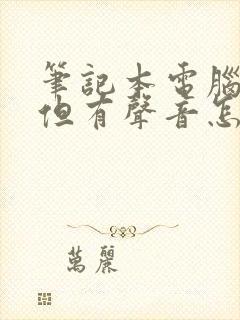 筆記本電腦
但有聲音怎
萬麗